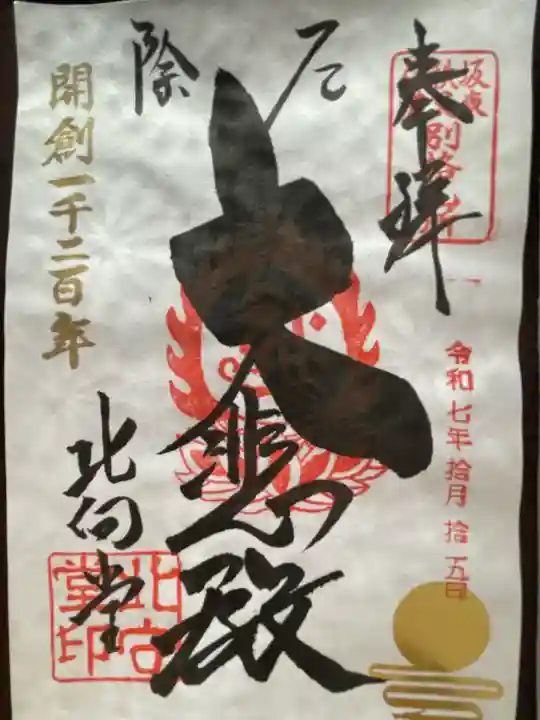 奉拝
坂東
別格
令和七年拾月拾五日
除厄
大悲殿
開創一千二百年
北向堂
北向堂印